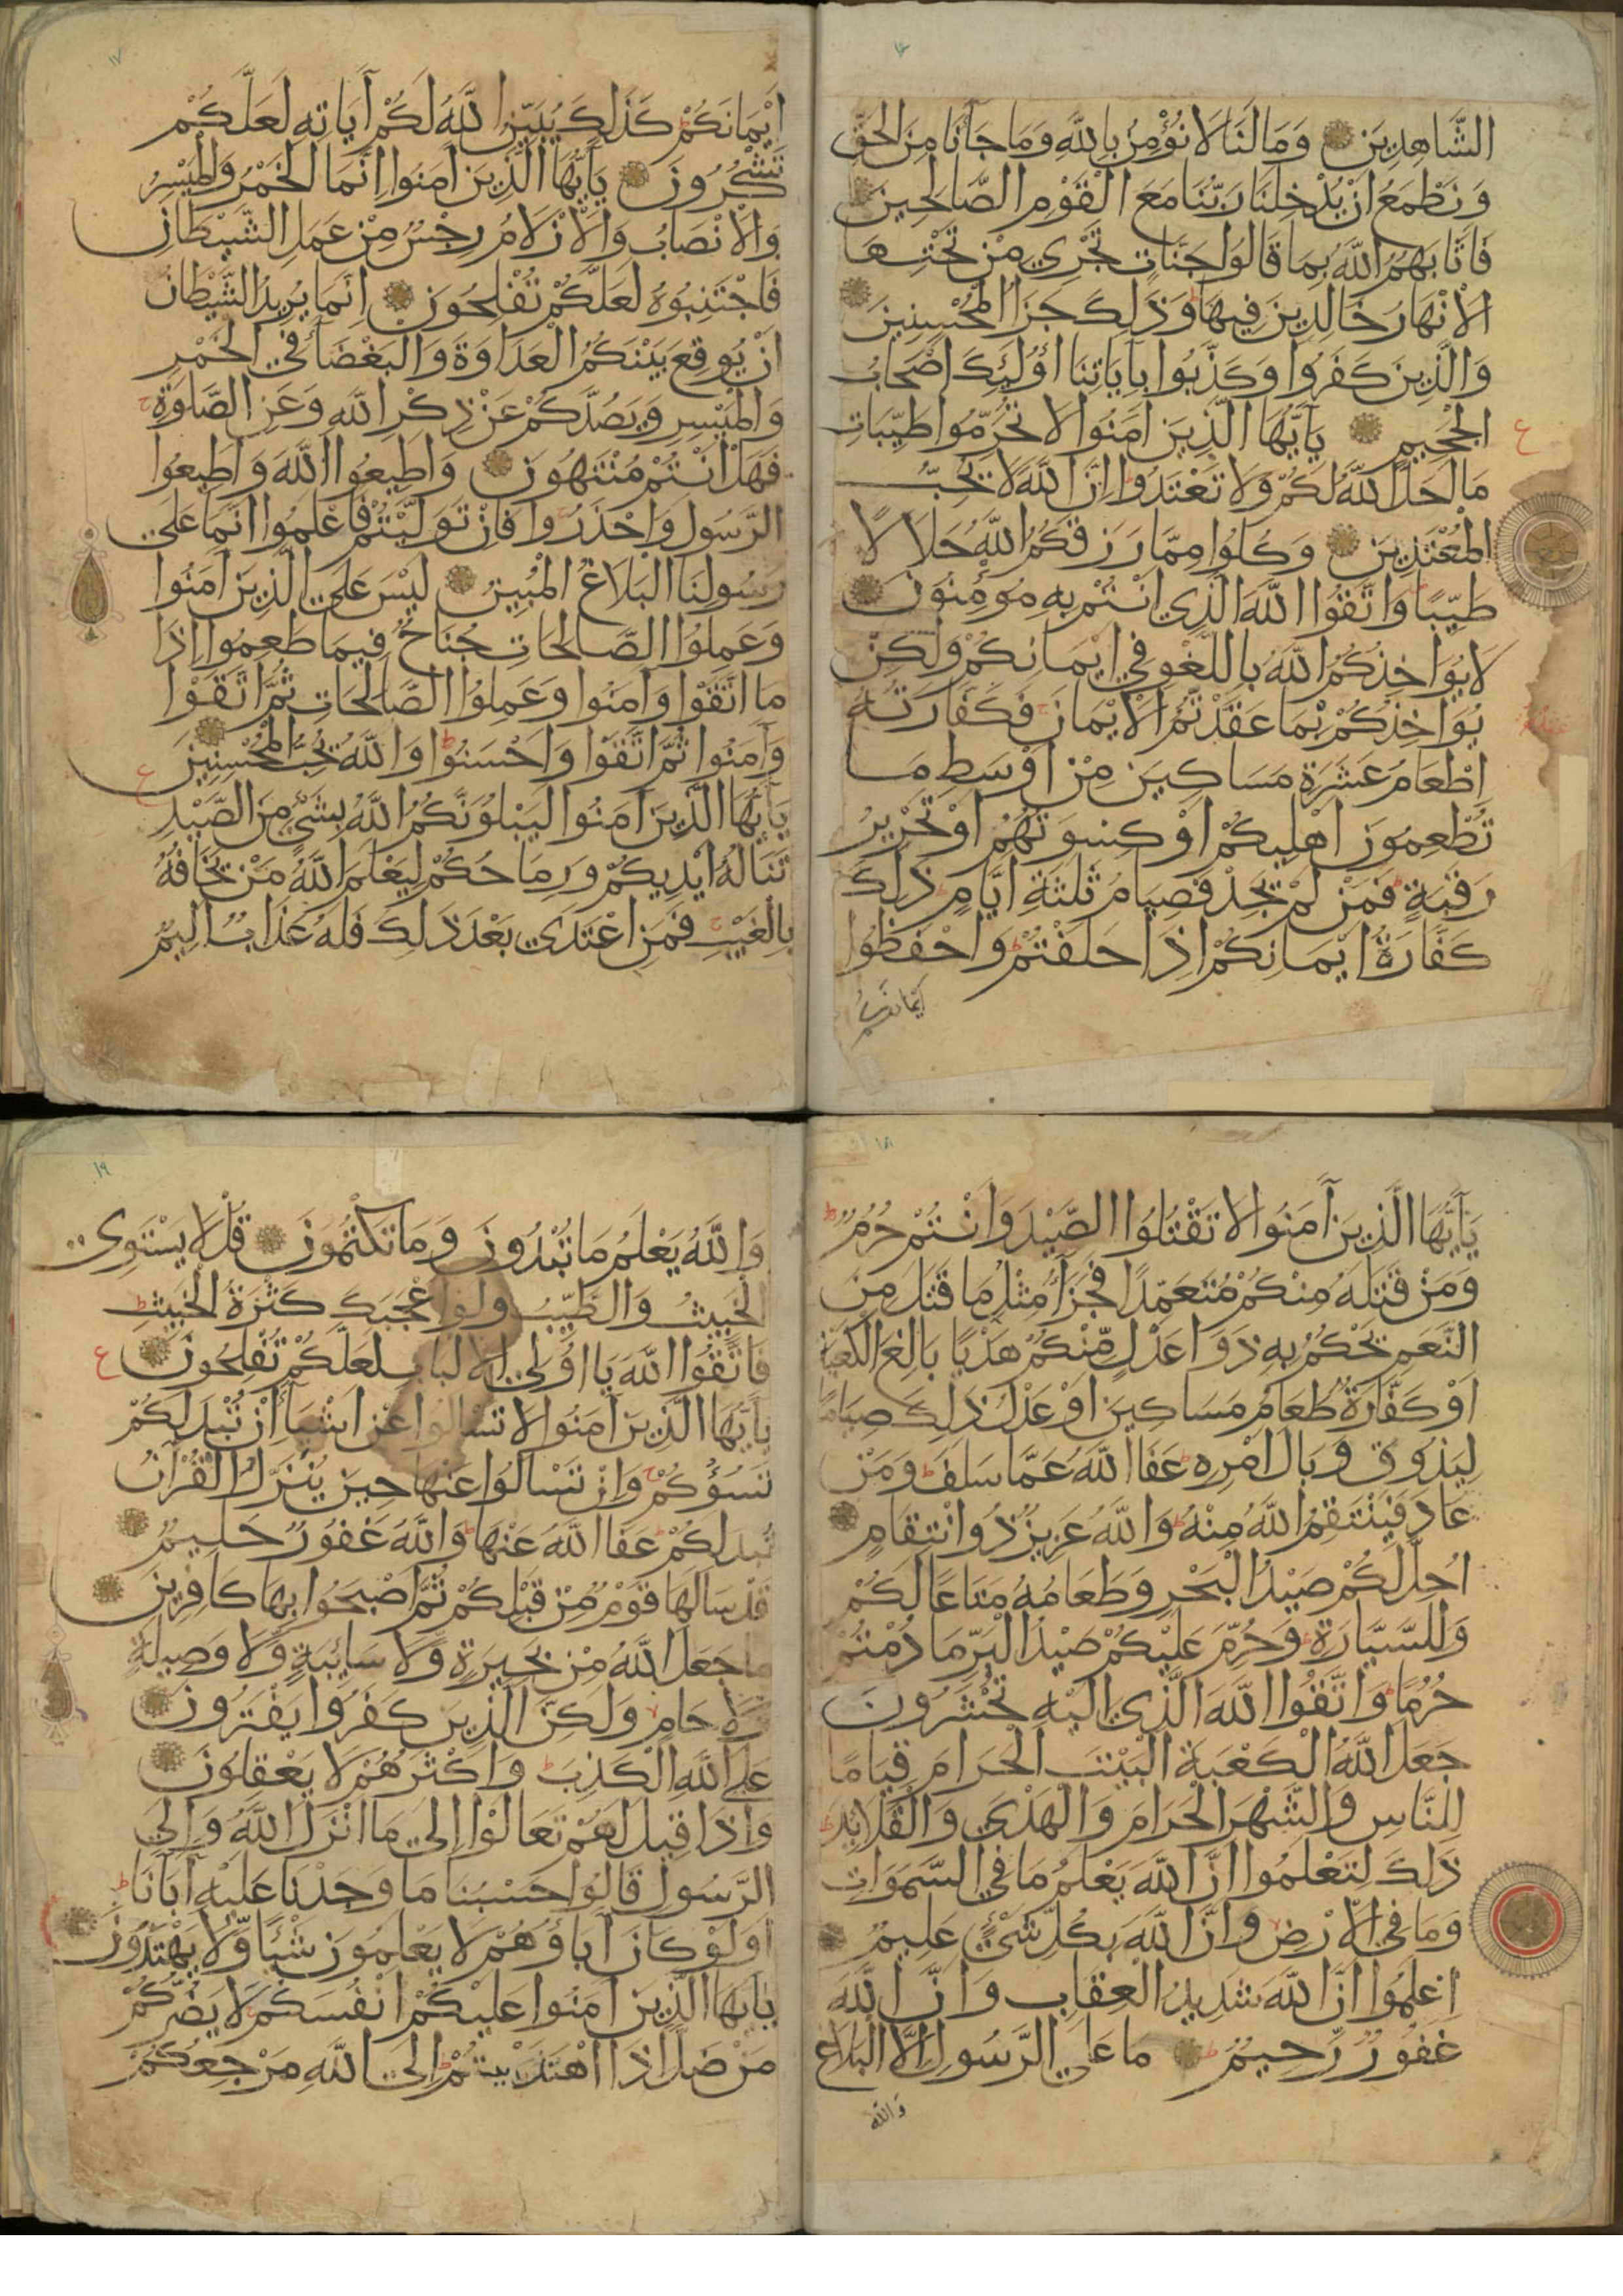 ١٦
الشَّاهِدِينَ وَمَا لَنَا لَا نُؤْمِنُ بِاللَّهِ وَمَا جَآنَا مِنَ الْحَقِّ
وَنَطْمَعُ اَنْ يُدْخِلَنَا رَبُّنَا مَعَ الْقَوْمِ الصَّالِحِينَ
فَاَثَابَهُمُ اللَّهُ بِمَا قَالُوا جَنَّاتٍ تَجْرِي مِنْ تَحْتِهَا
الْاَنْهَارُ خَالِدِينَ فِيهَا وَذَلِكَ جَزَاُ الْمُحْسِنِينَ
وَالَّذِينَ كَفَرُوا وَكَذَّبُوا بِآيَاتِنَا اُولَئِكَ اَصْحَابُ
الْجَحِيمِ يَآ اَيُّهَا الَّذِينَ اٰمَنُوا لَا تُحَرِّمُوا طَيِّبَاتِ
مَا اَحَلَّ اللَّهُ لَكُمْ وَلَا تَعْتَدُوا اِنَّ اللَّهَ لَا يُحِبُّ
الْمُعْتَدِينَ وَكُلُوا مِمَّا رَزَقَكُمُ اللَّهُ حَلَالًا
طَيِّبًا وَاتَّقُوا اللَّهَ الَّذِي اَنْتُمْ بِهِ مُؤْمِنُونَ
لَا يُوَاخِذُكُمُ اللَّهُ بِاللَّغْوِ فِي اَيْمَانِكُمْ وَلَكِنْ
يُوَاخِذُكُمْ بِمَا عَقَّدْتُمُ الْاَيْمَانَ فَكَفَّارَتُهُ
اِطْعَامُ عَشَرَةِ مَسَاكِينَ مِنْ اَوْسَطِ مَا
تُطْعِمُونَ اَهْلِيكُمْ اَوْ كِسْوَتُهُمْ اَوْ تَحْرِيرُ
رَقَبَةٍ فَمَنْ لَمْ يَجِدْ فَصِيَامُ ثَلٰثَةِ اَيَّامٍ ذَلِكَ
كَفَّارَةُ اَيْمَانِكُمْ اِذَا حَلَفْتُمْ وَاحْفَظُوا
اَيْمَانَكُمْ
ع
١٧
اَيْمَانَكُمْ كَذَلِكَ يُبَيِّنُ اللَّهُ لَكُمْ آيَاتِهِ لَعَلَّكُمْ
تَشْكُرُونَ يَآ اَيُّهَا الَّذِينَ آمَنُوا اِنَّمَا الْخَمْرُ وَالْمَيْسِرُ
وَالْاَنْصَابُ وَالْاَزْلَامُ رِجْسٌ مِنْ عَمَلِ الشَّيْطَانِ
فَاجْتَنِبُوهُ لَعَلَّكُمْ تُفْلِحُونَ اِنَّمَا يُرِيدُ الشَّيْطَانُ
اَنْ يُوقِعَ بَيْنَكُمُ الْعَدَاوَةَ وَالْبَغْضَآءَ فِي الْخَمْرِ
وَالْمَيْسِرِ وَيَصُدَّكُمْ عَنْ ذِكْرِ اللَّهِ وَعَنِ الصَّلٰوةِ
فَهَلْ اَنْتُمْ مُنْتَهُونَ وَاَطِيعُوا اللَّهَ وَاَطِيعُوا
الرَّسُولَ وَاحْذَرُوا فَاِنْ تَوَلَّيْتُمْ فَاعْلَمُوا اَنَّمَا عَلَى
رَسُولِنَا الْبَلَاغُ الْمُبِينُ لَيْسَ عَلَى الَّذِينَ اٰمَنُوا
وَعَمِلُوا الصَّالِحَاتِ جُنَاحٌ فِيمَا طَعِمُوا اِذَا
مَا اتَّقَوْا وَاٰمَنُوا وَعَمِلُوا الصَّالِحَاتِ ثُمَّ اتَّقَوْا
وَآمَنُوا ثُمَّ اتَّقَوْا وَاَحْسَنُوا وَاللَّهُ يُحِبُّ الْمُحْسِنِينَ
يَآ اَيُّهَا الَّذِينَ اٰمَنُوا لَيَبْلُوَنَّكُمُ اللَّهُ بِشَيْءٍ مِنَ الصَّيْدِ
تَنَالُهُ اَيْدِيكُمْ وَرِمَاحُكُمْ لِيَعْلَمَ اللَّهُ مَنْ يَخَافُهُ
بِالْغَيْبِ فَمَنِ اعْتَدَى بَعْدَ ذَلِكَ فَلَهُ عَذَابٌ اَلِيمٌ
ع
١٨
يَآ اَيُّهَا الَّذِينَ آمَنُوا لَا تَقْتُلُوا الصَّيْدَ وَاَنْتُمْ حُرُمٌ
وَمَنْ قَتَلَهُ مِنْكُمْ مُتَعَمِّدًا فَجَزَآءٌ مِثْلُ مَا قَتَلَ مِنَ
النَّعَمِ يَحْكُمُ بِهِ ذَوَا عَدْلٍ مِّنْكُمْ هَدْيًا بَالِغَ الْكَعْبَةِ
اَوْ كَفَّارَةٌ طَعَامُ مَسَاكِينَ اَوْ عَدْلُ ذَلِكَ صِيَامًا
لِيَذُوقَ وَبَالَ اَمْرِهِ عَفَا اللَّهُ عَمَّا سَلَفَ وَمَنْ
عَادَ فَيَنْتَقِمُ اللَّهُ مِنْهُ وَاللَّهُ عَزِيزٌ ذُو انْتِقَامٍ
اُحِلَّ لَكُمْ صَيْدُ الْبَحْرِ وَطَعَامُهُ مَتَاعًا لَكُمْ
وَلِلسَّيَّارَةِ وَحُرِّمَ عَلَيْكُمْ صَيْدُ الْبَرِّ مَا دُمْتُمْ
حُرُمًا وَاتَّقُوا اللَّهَ الَّذِي اِلَيْهِ تُحْشَرُونَ
جَعَلَ اللَّهُ الْكَعْبَةَ الْبَيْتَ الْحَرَامَ قِيَامًا
لِلنَّاسِ وَالشَّهْرَ الْحَرَامَ وَالْهَدْيَ وَالْقَلَايِدَ
ذَلِكَ لِتَعْلَمُوا اَنَّ اللَّهَ يَعْلَمُ مَا فِي السَّمٰوَاتِ
وَمَا فِي الْاَرْضِ وَاَنَّ اللَّهَ بِكُلِّ شَيْءٍ عَلِيمٌ
اِعْلَمُوا اَنَّ اللَّهَ شَدِيدُ الْعِقَابِ وَاَنَّ اللَّهَ
غَفُورٌ رَّحِيمٌ مَا عَلَى الرَّسُولِ اِلَّا الْبَلَاغُ
وَاللَّهُ
١٩
وَاللَّهُ يَعْلَمُ مَا تُبْدُونَ وَمَا تَكْتُمُونَ قُلْ لَا يَسْتَوِي
الْخَبِيثُ وَالطَّيِّبُ وَلَوْ اَعْجَبَكَ كَثْرَةُ الْخَبِيثِ
فَاتَّقُوا اللَّهَ يَا اُولِي الْاَلْبَابِ لَعَلَّكُمْ تُفْلِحُونَ
يَآ اَيُّهَا الَّذِينَ آمَنُوا لَا تَسْاَلُوا عَنْ اَشْيَآءَ اِنْ تُبْدَ لَكُمْ
تَسُؤْكُمْ وَاِنْ تَسْاَلُوا عَنْهَا حِينَ يُنَزَّلُ الْقُرْآنُ
تُبْدَ لَكُمْ عَفَا اللَّهُ عَنْهَا وَاللَّهُ غَفُورٌ حَلِيمٌ
قَدْ سَاَلَهَا قَوْمٌ مِنْ قَبْلِكُمْ ثُمَّ اَصْبَحُوا بِهَا كَافِرِينَ
مَا جَعَلَ اللَّهُ مِنْ بَحِيرَةٍ وَلَا سَائِبَةٍ وَلَا وَصِيلَةٍ
وَلَا حَامٍ وَلَكِنَّ الَّذِينَ كَفَرُوا يَفْتَرُونَ
عَلَى اللَّهِ الْكَذِبَ وَاَكْثَرُهُمْ لَا يَعْقِلُونَ
وَاِذَا قِيلَ لَهُمْ تَعَالَوْا اِلَى مَا اَنْزَلَ اللَّهُ وَاِلَى
الرَّسُولِ قَالُوا حَسْبُنَا مَا وَجَدْنَا عَلَيْهِ آبَآنَا
اَوَلَوْ كَانَ آبَاؤُهُمْ لَا يَعْلَمُونَ شَيْئًا وَّلَا يَهْتَدُونَ
يَآ اَيُّهَا الَّذِينَ اٰمَنُوا عَلَيْكُمْ اَنْفُسَكُمْ لَا يَضُرُّكُمْ
مَنْ ضَلَّ اِذَا اهْتَدَيْتُمْ اِلَى اللَّهِ مَرْجِعُكُمْ
ع